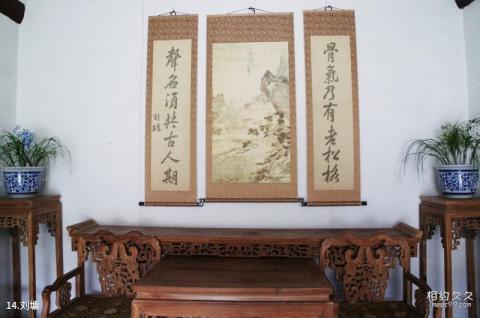 骨氣乃有老松格
聲名須共古人期
劉墉
14.刘墉
相约久久
meet99.com